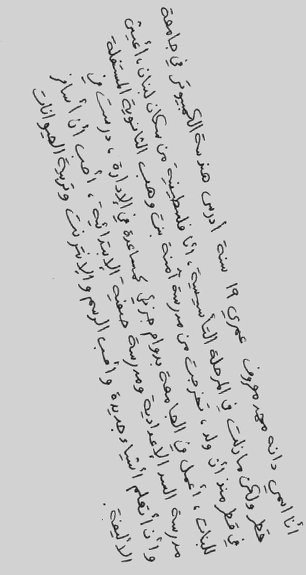 أنا اسمي دانه محمد معروف عمري ١٩ سنة أدرس هندسة الكمبيوتر في جامعة
قطر ولكن مازلت في المرحلة التأسيسية، أنا فلسطينية من سكان لبنان، أعيش
في قطر منذ أن ولد، تخرجت من مدرسة آمنة بنت وهب الثانوية المستقلة
للبنات، أعمل في الجامعة بدوام جزئي كمساعدة في الإدارة، درست في
مدرسة السد الإعدادية ومدرسة الإبتدائية، أحب أن أسافر
وأن أتعلم أشياء جديدة وأحب الرسم والإنترنت وتربية الحيوانات
الأليفة.